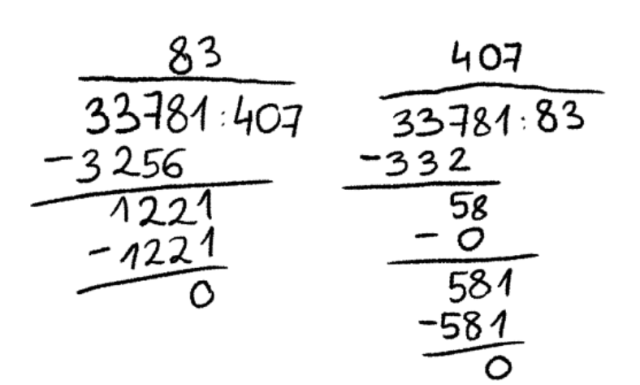 83
33781:407
-3256
1221
-1221
0
407
33781:83
-332
58
-0
581
-581
0